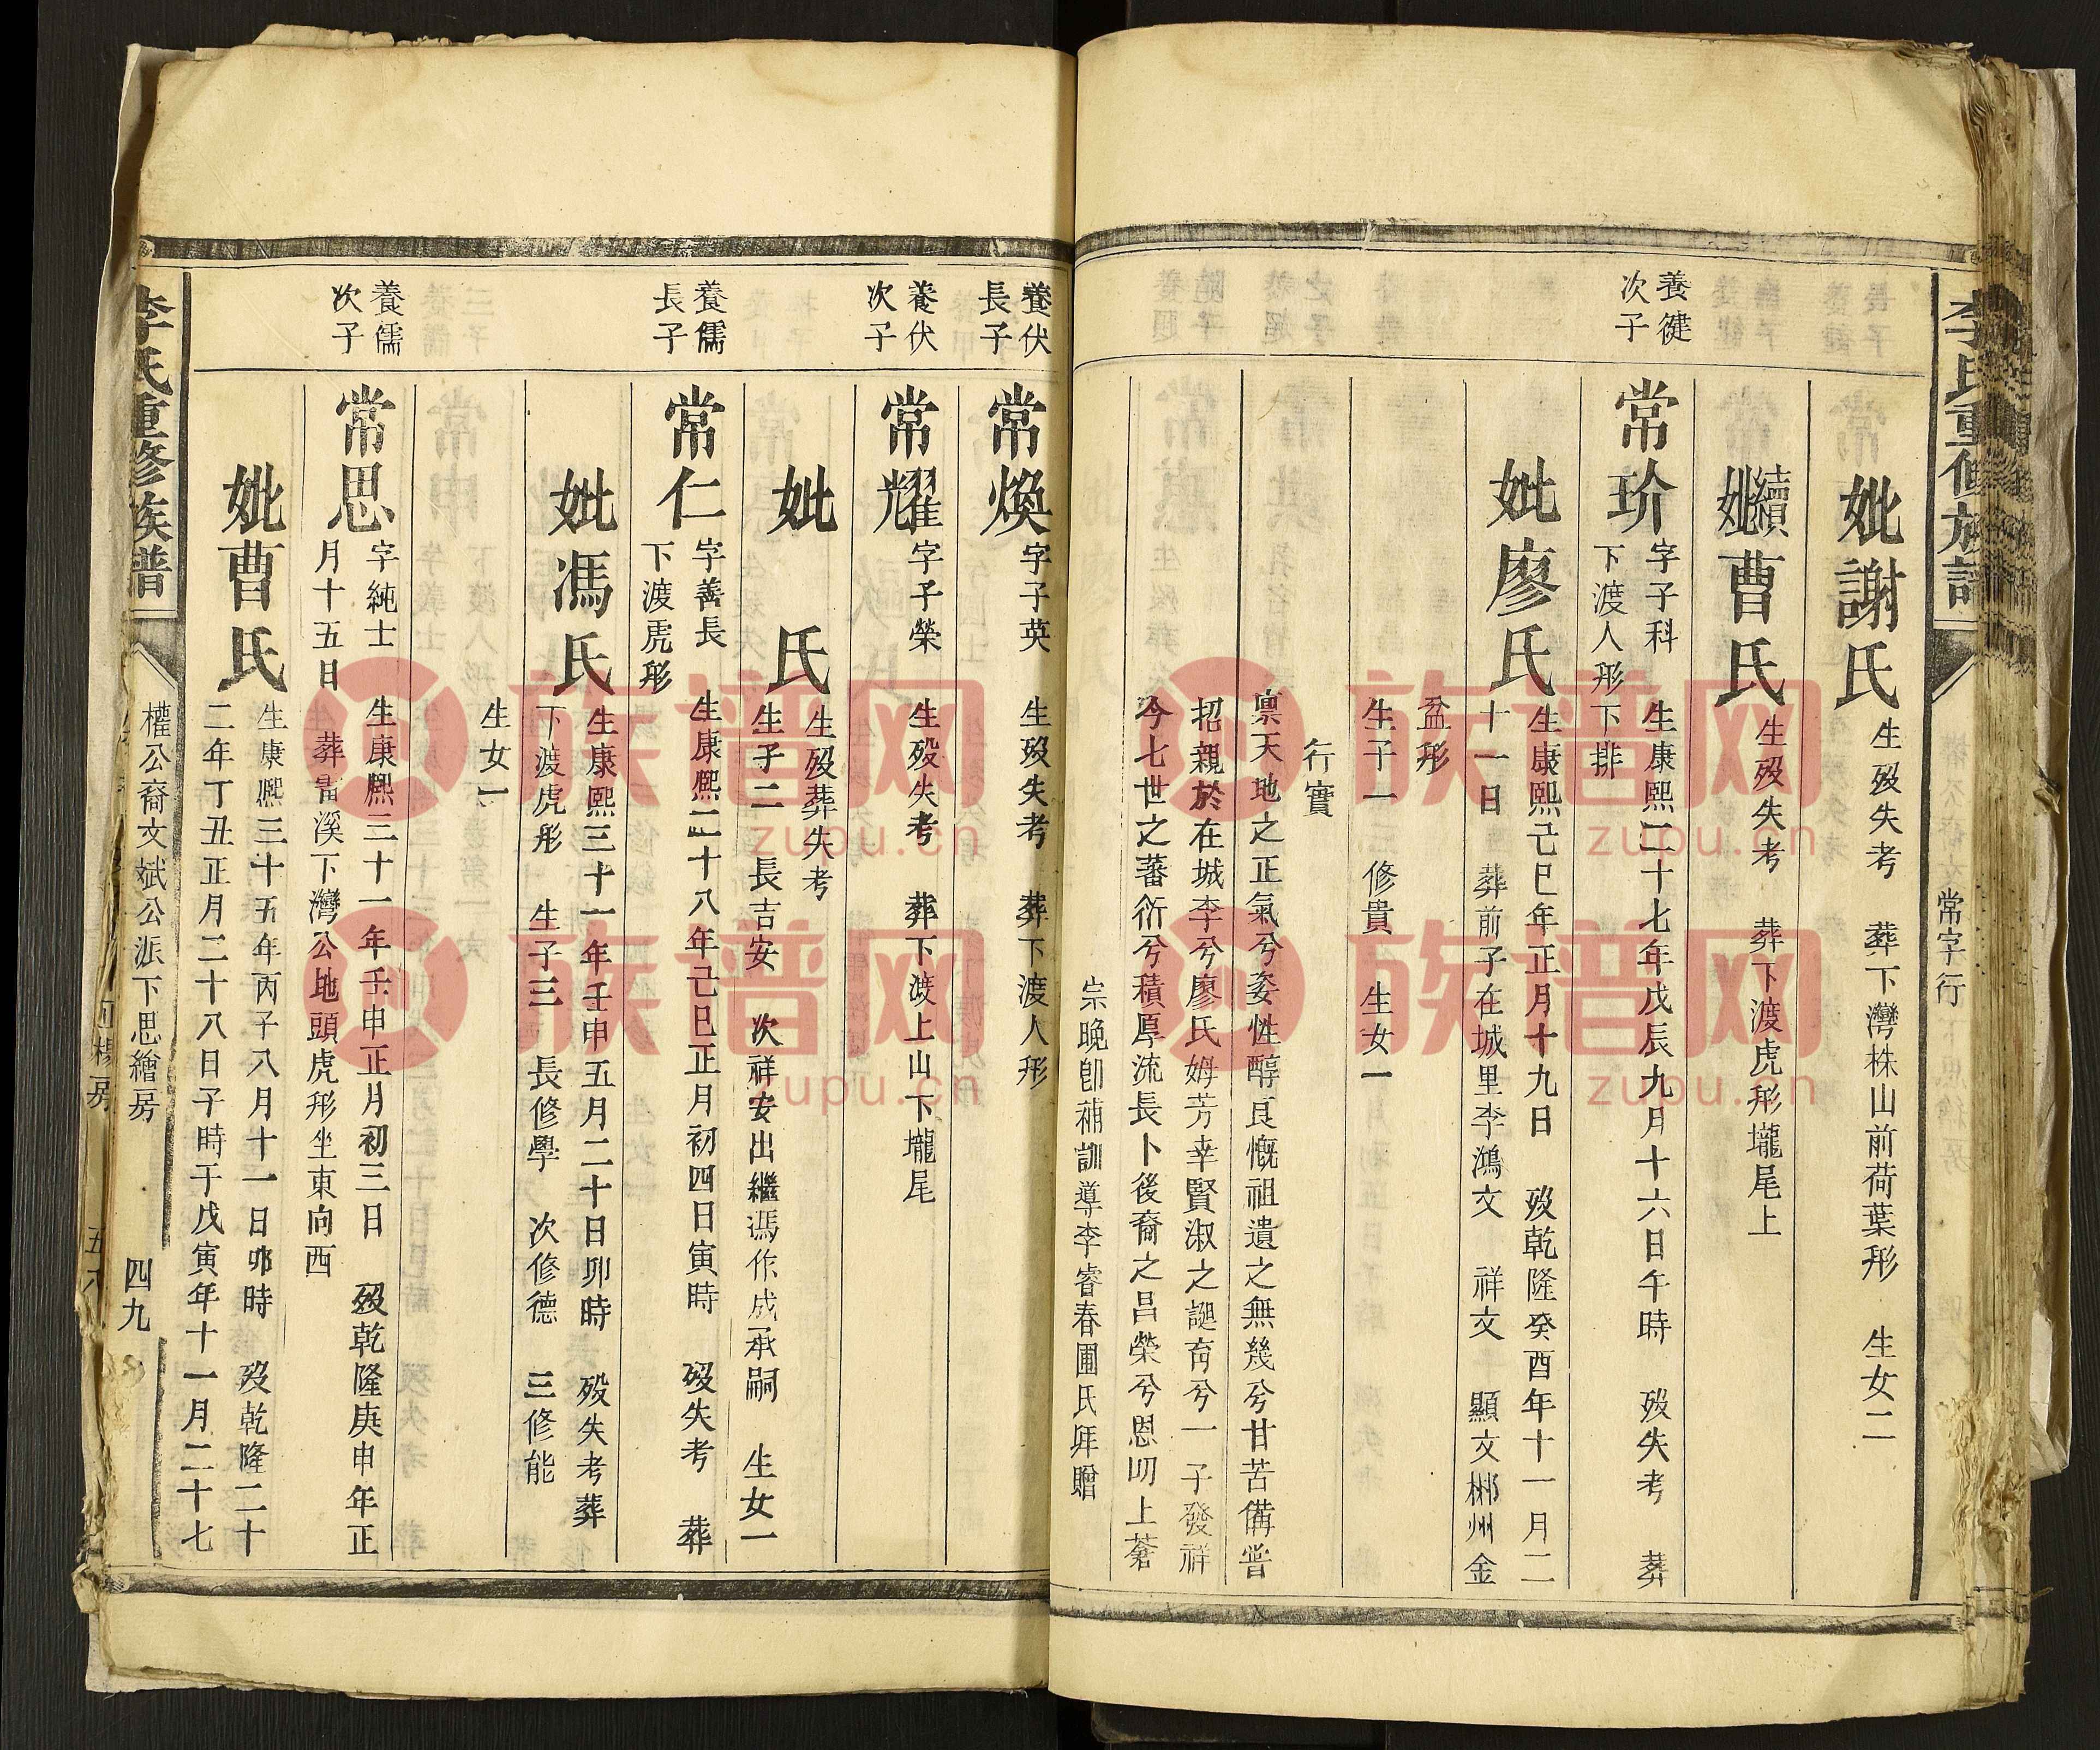 李氏重修族譜
常字行
妣謝氏
生歿失考 葬下灣株山前荷葉形 生女二
續妣曹氏
生歿失考 葬下渡虎形壠尾上
養健次子
常玠
字子科
生康熙二十七年戊辰九月十六日午時 歿失考 葬
下渡人形下排
妣廖氏
生康熙己巳年正月十九日 歿乾隆癸酉年十一月二
十一日 葬前子在城里李鴻文 祥文 顯文郴州金
盆形
生子一 修貴 生女一
行實
禀天地之正氣兮姿性醇良慨祖遺之無幾兮甘苦備嘗
招親於在城李兮廖氏姆芳幸賢淑之誕育兮一子發祥
今七世之蕃衍兮積厚流長卜後裔之昌榮兮恩叨上蒼
宗晚卽補訓導李睿春圃氏拜贈
養伏長子
常煥
字子英
生歿失考 葬下渡人形
養伏次子
常耀
字子榮
生歿失考 葬下渡上山下壠尾
妣 氏
生歿葬失考
生子二 長吉安 次祥安出繼馮作成承嗣 生女一
養儒長子
常仁
字善長
生康熙二十八年己巳正月初四日寅時 歿失考 葬
下渡虎形
妣馮氏
生康熙三十一年壬申五月二十日卯時 歿失考葬
下渡虎形 生子三 長修學 次修德 三修能
生女一
養儒次子
常思
字純士
生康熙三十一年壬申正月初三日 歿乾隆庚申年正
月十五日 葬雷溪下灣公地頭虎形坐東向西
妣曹氏
生康熙三十五年丙子八月十一日卯時 歿乾隆二十
二年丁丑正月二十八日子時于戊寅年十一月二十七
李氏重修族譜
權公裔文斌公派下思繪房
四九
族譜网
zupu.cn
族譜网
zupu.cn
族譜网
zupu.cn
族譜网
zupu.cn